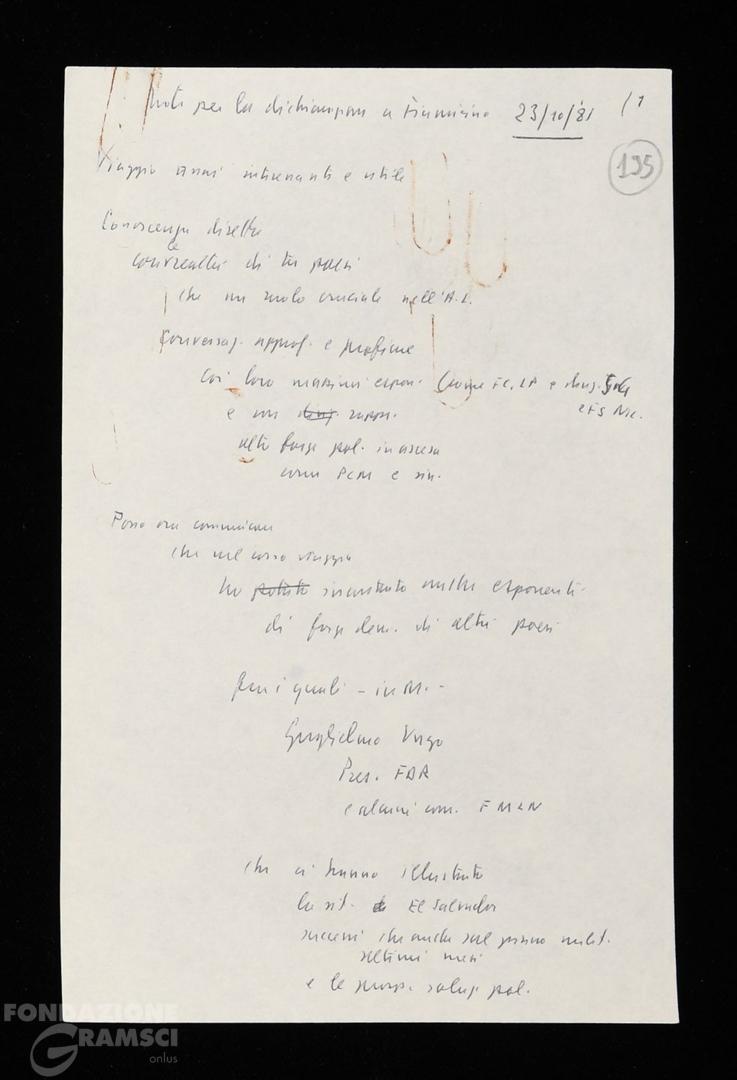 Note per la dichiarazion a Fiumicino 23/10/'81 (1
195
Viaggio assai interessante e utile
Conoscenza diretta
e
con realtà di tre paesi
che un ruolo cruciale nell'A.L.
Conversaz. approf. e proficue
coi loro massimi espon. (come FC, LP e
e FS Nic.
e con rappr.
altre forze pol. in ascesa
come PCM e sin.
Posso ora comunicare
che nel corso viaggio
ho potuto incontrato anche esponenti
di forze dem. di altri paesi
fra i quali - in M. -
Guglielmo Ungo
Pres. FDR
e alcuni com. FMLN
che ci hanno illustrato
la sit. El Salvador
successi che anche sul piano milit.
ultimi mesi
e le prosp. soluz. pol.
FONDAZIONE
GRAMSCI
onlus